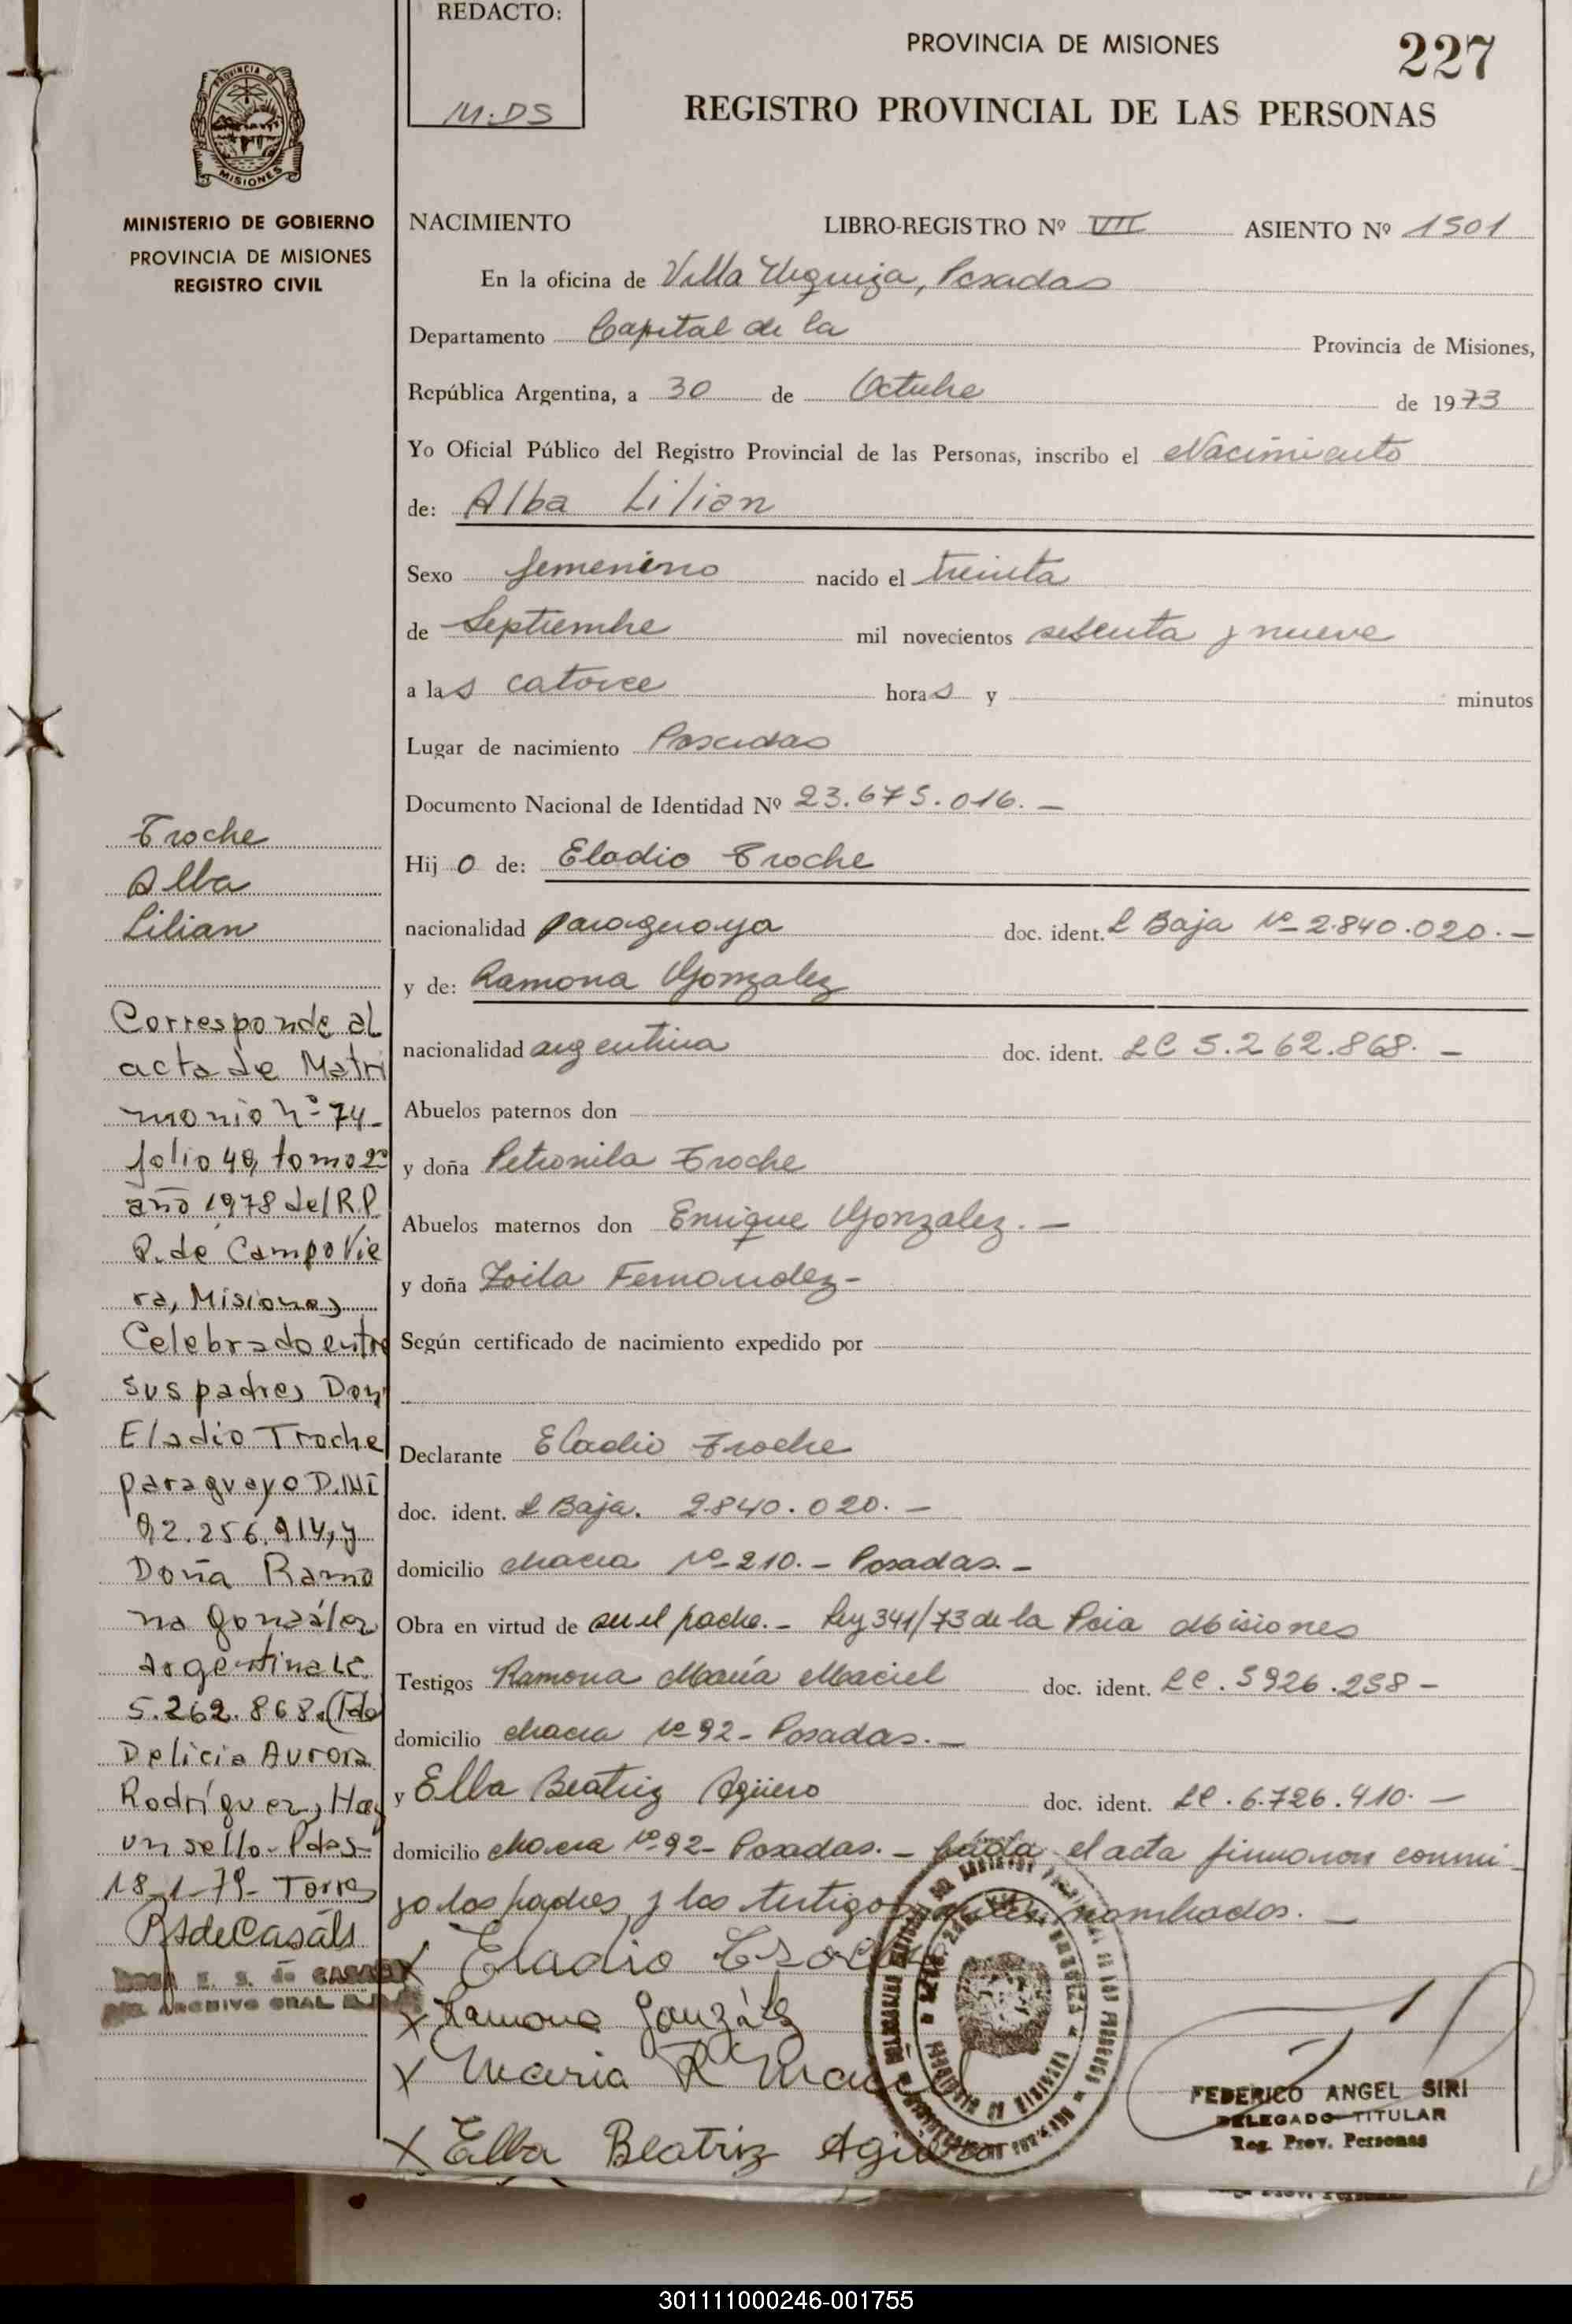 REDACTO:
M.DS
PROVINCIA DE MISIONES
227
REGISTRO PROVINCIAL DE LAS PERSONAS
PROVINCIA DE
MISIONES
MINISTERIO DE GOBIERNO
PROVINCIA DE MISIONES
REGISTRO CIVIL
NACIMIENTO LIBRO-REGISTRO Nº VII ASIENTO Nº 1501
En la oficina de Villa Urquiza, Posadas
Departamento Capital de la Provincia de Misiones,
República Argentina, a 30 de Octubre de 1973
Yo Oficial Público del Registro Provincial de las Personas, inscribo el Nacimiento
de: Alba Lilian
Sexo femenino nacido el treinta
de Septiembre mil novecientos sesenta y nueve
a las catorce horas y minutos
Lugar de nacimiento Posadas
Documento Nacional de Identidad Nº 23.675.016. —
Hijo de: Eladio Troche
nacionalidad paraguaya doc. ident. L Baja Nº 2.840.020. —
y de: Ramona Gonzalez
nacionalidad argentina doc. ident. LC 5.262.868. —
Abuelos paternos don
y doña Petronila Troche
Abuelos maternos don Enrique Gonzalez. —
y doña Zoila Fernandez -
Según certificado de nacimiento expedido por
Declarante Eladio Troche
doc. ident. L Baja. 2.840.020. —
domicilio chacra Nº 210. - Posadas. -
Obra en virtud de ser el padre. - Ley 341/73 de la Pcia Misiones
Testigos Ramona María Maciel doc. ident. LC. 5926.258 -
domicilio chacra Nº 92 - Posadas. —
y Elba Beatriz Agüero doc. ident. LC. 6.726.410. —
domicilio chacra Nº 92 - Posadas. - Leída el acta firmaron conmi
go los padres y los testigos nombrados. —
X Eladio Troche
X Ramona González
X Maria R Maciel
X Elba Beatriz Agüero
FEDERICO ANGEL SIRI
DELEGADO TITULAR
Reg. Prov. Personas
Troche
Alba
Lilian
Corresponde al
acta de Matri
monio nº 74
folio 49, tomo 2º
año 1978 del R.P.
P. de Campo Vie
ra, Misiones
Celebrado entre
sus padres Don
Eladio Troche
paraguayo D.NI
92.256.914, y
Doña Ramo
na González
Argentina LC.
5.262.868. (Fdo
Delicia Aurora
Rodríguez, Hay
un sello - Pdas-
18-1-79- Torres
RSdeCasals
ROSA E. S. de CASALS
ARCHIVO GRAL
301111000246-001755